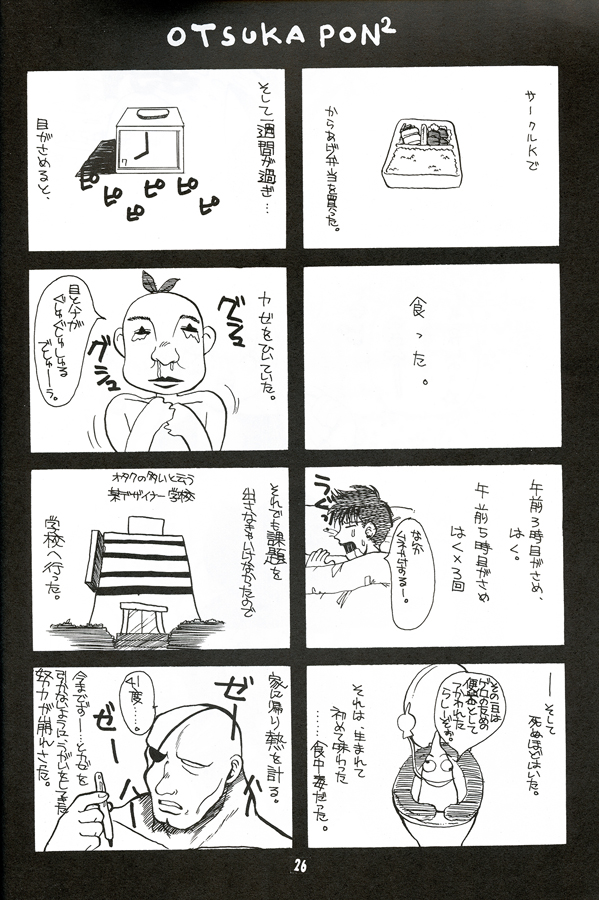 OTSUKA PON²
サークルKで
からあげ弁当を買った。
食った。
午前3時目がさめ、
はく。
午前5時目がさめ
はく×3回
なんか
くるーっ
うぐっ
――そして
死ぬほどはいた。
その日は
ゲロのための
便器として
つかわれた
らしいぞぉ。
それは 生まれて
初めて味わった
……食中毒だった。
そして一週間が過ぎ…
目がさめると、
ピ ピ ピ ピ ピ ピ
カゼをひいていた。
グシュ
グシュ
目とハナが
ぐしゅぐしゅする
でしゅーう。
オタクの多いと云う
某デザイナー学校
それでも課題を
出さなきゃいけなかったので
学校へ行った。
家に帰り熱を計る。
ゼー
ゼー
41度…。
今までずーっとカゼを
引かないようにうがいをしてきた
努力が崩れさった。
26